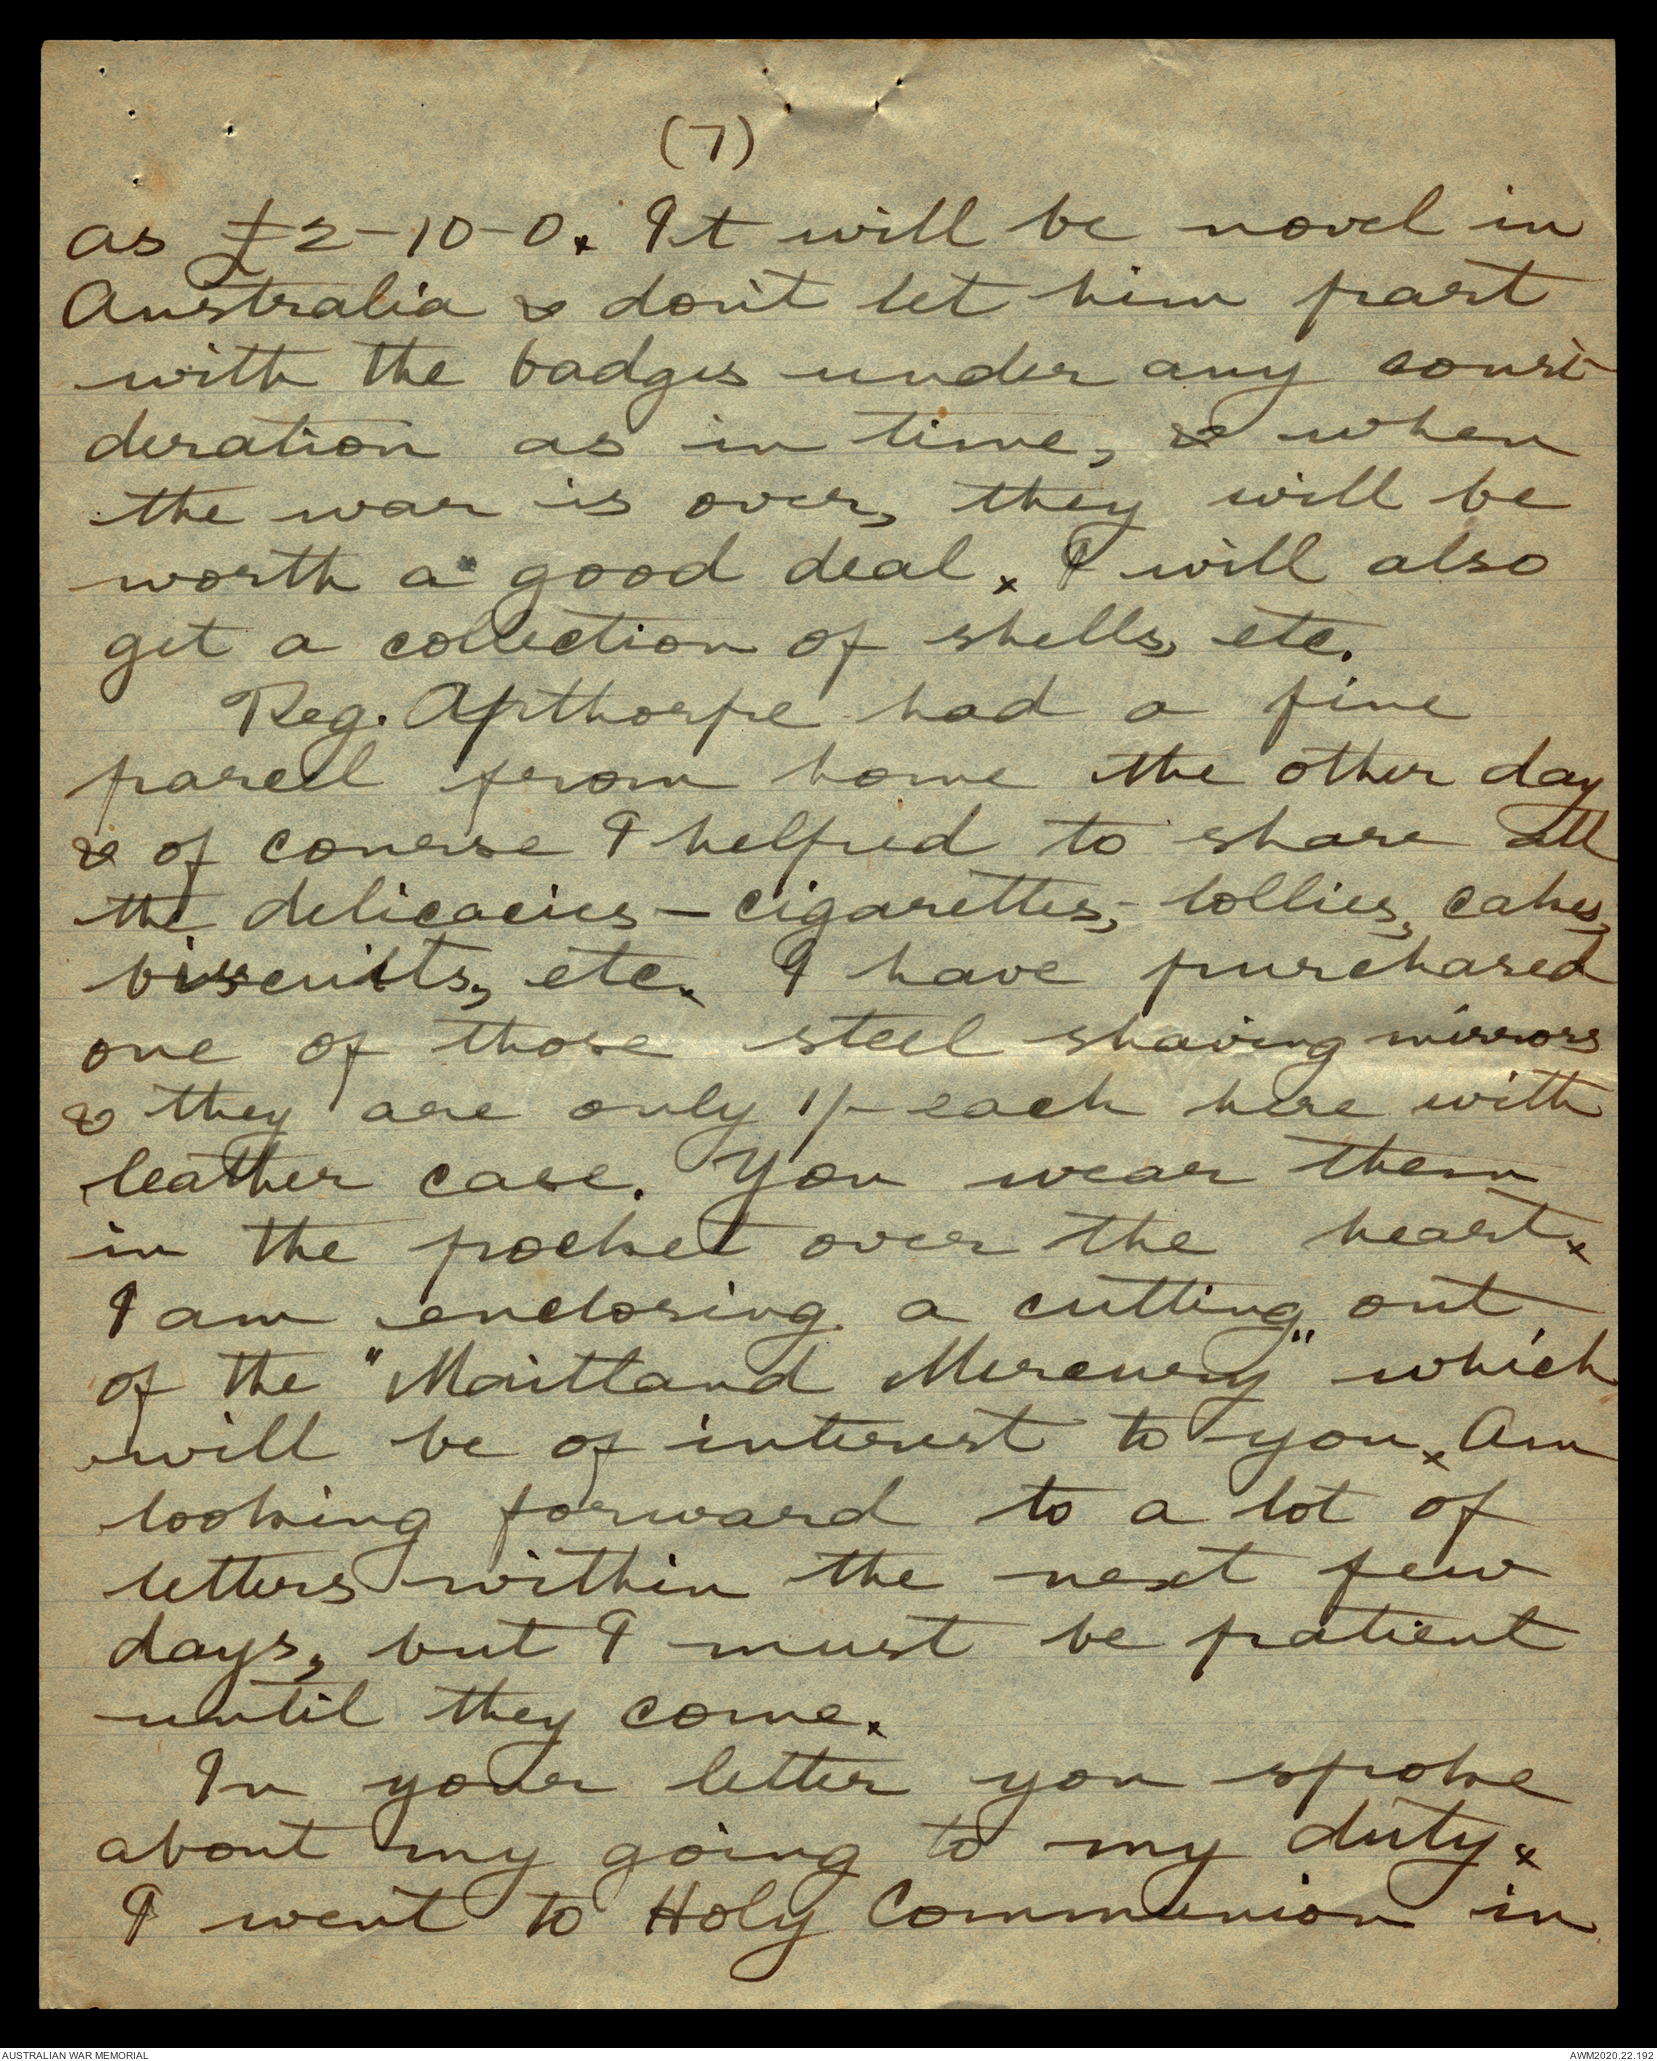 (7)
as £2-10-0. It will be novel in
Australia & don't let him part
with the badges under any consi-
deration as in time, & when
the war is over, they will be
worth a good deal. I will also
get a collection of shells, etc.
Reg. Apthorpe had a fine
parcel from home the other day
& of course I helped to share all
the delicacies - cigarettes, lollies, cakes,
biscuits, etc. I have purchased
one of those steel shaving mirrors
& they are only 1/- each here with
leather case. You wear them
in the pocket over the heart.
I am enclosing a cutting out
of the "Maitland Mercury" which
will be of interest to you. Am
looking forward to a lot of
letters within the next few
days, but I must be patient
until they come.
In your letter you spoke
about my going to my duty.
I went to Holy Communion in
AUSTRALIAN WAR MEMORIAL
AWM2020.22.192